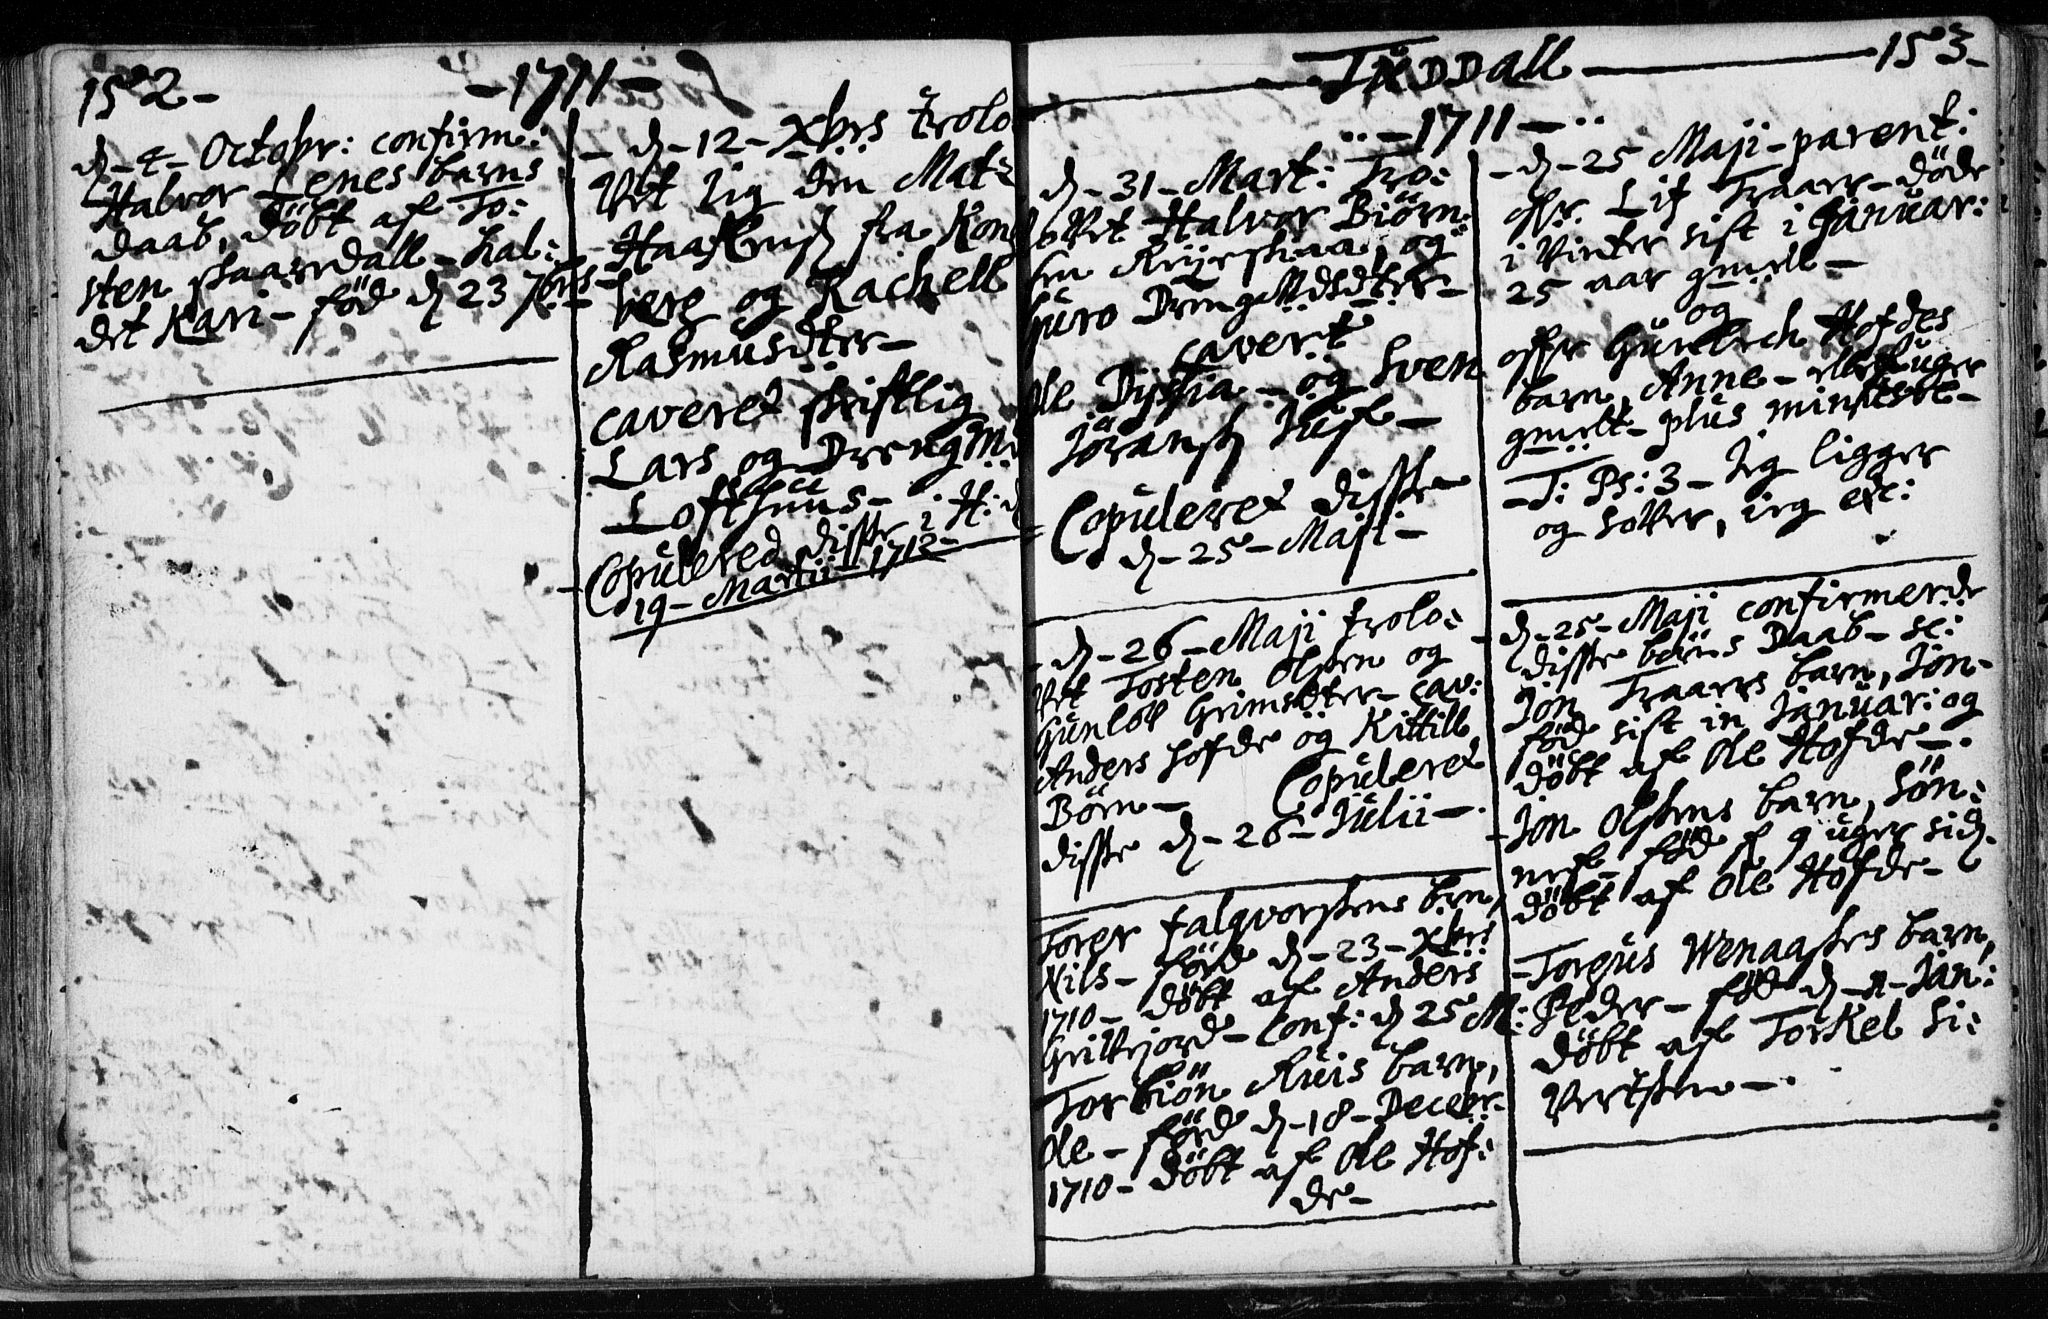 152 -
- 1711 -
d - 4 - Octobr: confirm:
Halvor Lenes barns
daab, döbt af To:
sten skaardall - kal:
det Kari - föd d 23 7brs -
- d - 12 - Xbrs trolo
Vet sig den
Haa fra Kong
berg og Rachell
Rasmusdter -
caveret skriftlig
Lars og Dreng
Lofthuus - i H:
Copulered disse
19 - Martii 1712 -
Tüddall 153 -
- 1711 -
d - 31 - Mart: Tro:
loVet Halvor Biörn:
sen og
Guro DrengMdsdter -
caverit
Ole og Sven
Jörans
Copuleret disse
d - 25 - Maji -
- d - 26 - Maji trolo:
Vet Tosten Olsen og
Gunlöv Grimsdter - cav:
Anders Hofde og Kittill
Börn - Copuleret
disse d - 26 - Julii - .
Torer falqvorsens brn,
Nils - förd d - 23 - Xbrs
1710 - döbt af Anders
Grivejord - Conf: d 25 M:
Torbiön Ruis barn,
Ole - förd d - 18 - Decepr -
1710 - döbt af Ole Hof:
de -
- d - 25 Maji - parent:
ofr. Lif Traaers - döde
i Vinter sist i Januar:
25 aar gmell -
og
ofr Hofdes
barn, Anne - uger
gmelt - plus minusve -
- T: Ps: 3 - Jeg ligger
og soVer, ieg etc:
- d - 25 - Maji confirmerde
disse börns Daab - sc:
Jon Traaers barn, Jon -
föd sist in Januar: og
döbt af Ole Hofde - .
- Jon Olsens barn, Sön:
nef - föd for 9 uger sid.
döbt af Ole Hofde -
- Torgus Wenaases barn,
Peder - föd d - - Jan:
döbt af Torkel Si:
Vertsen - .